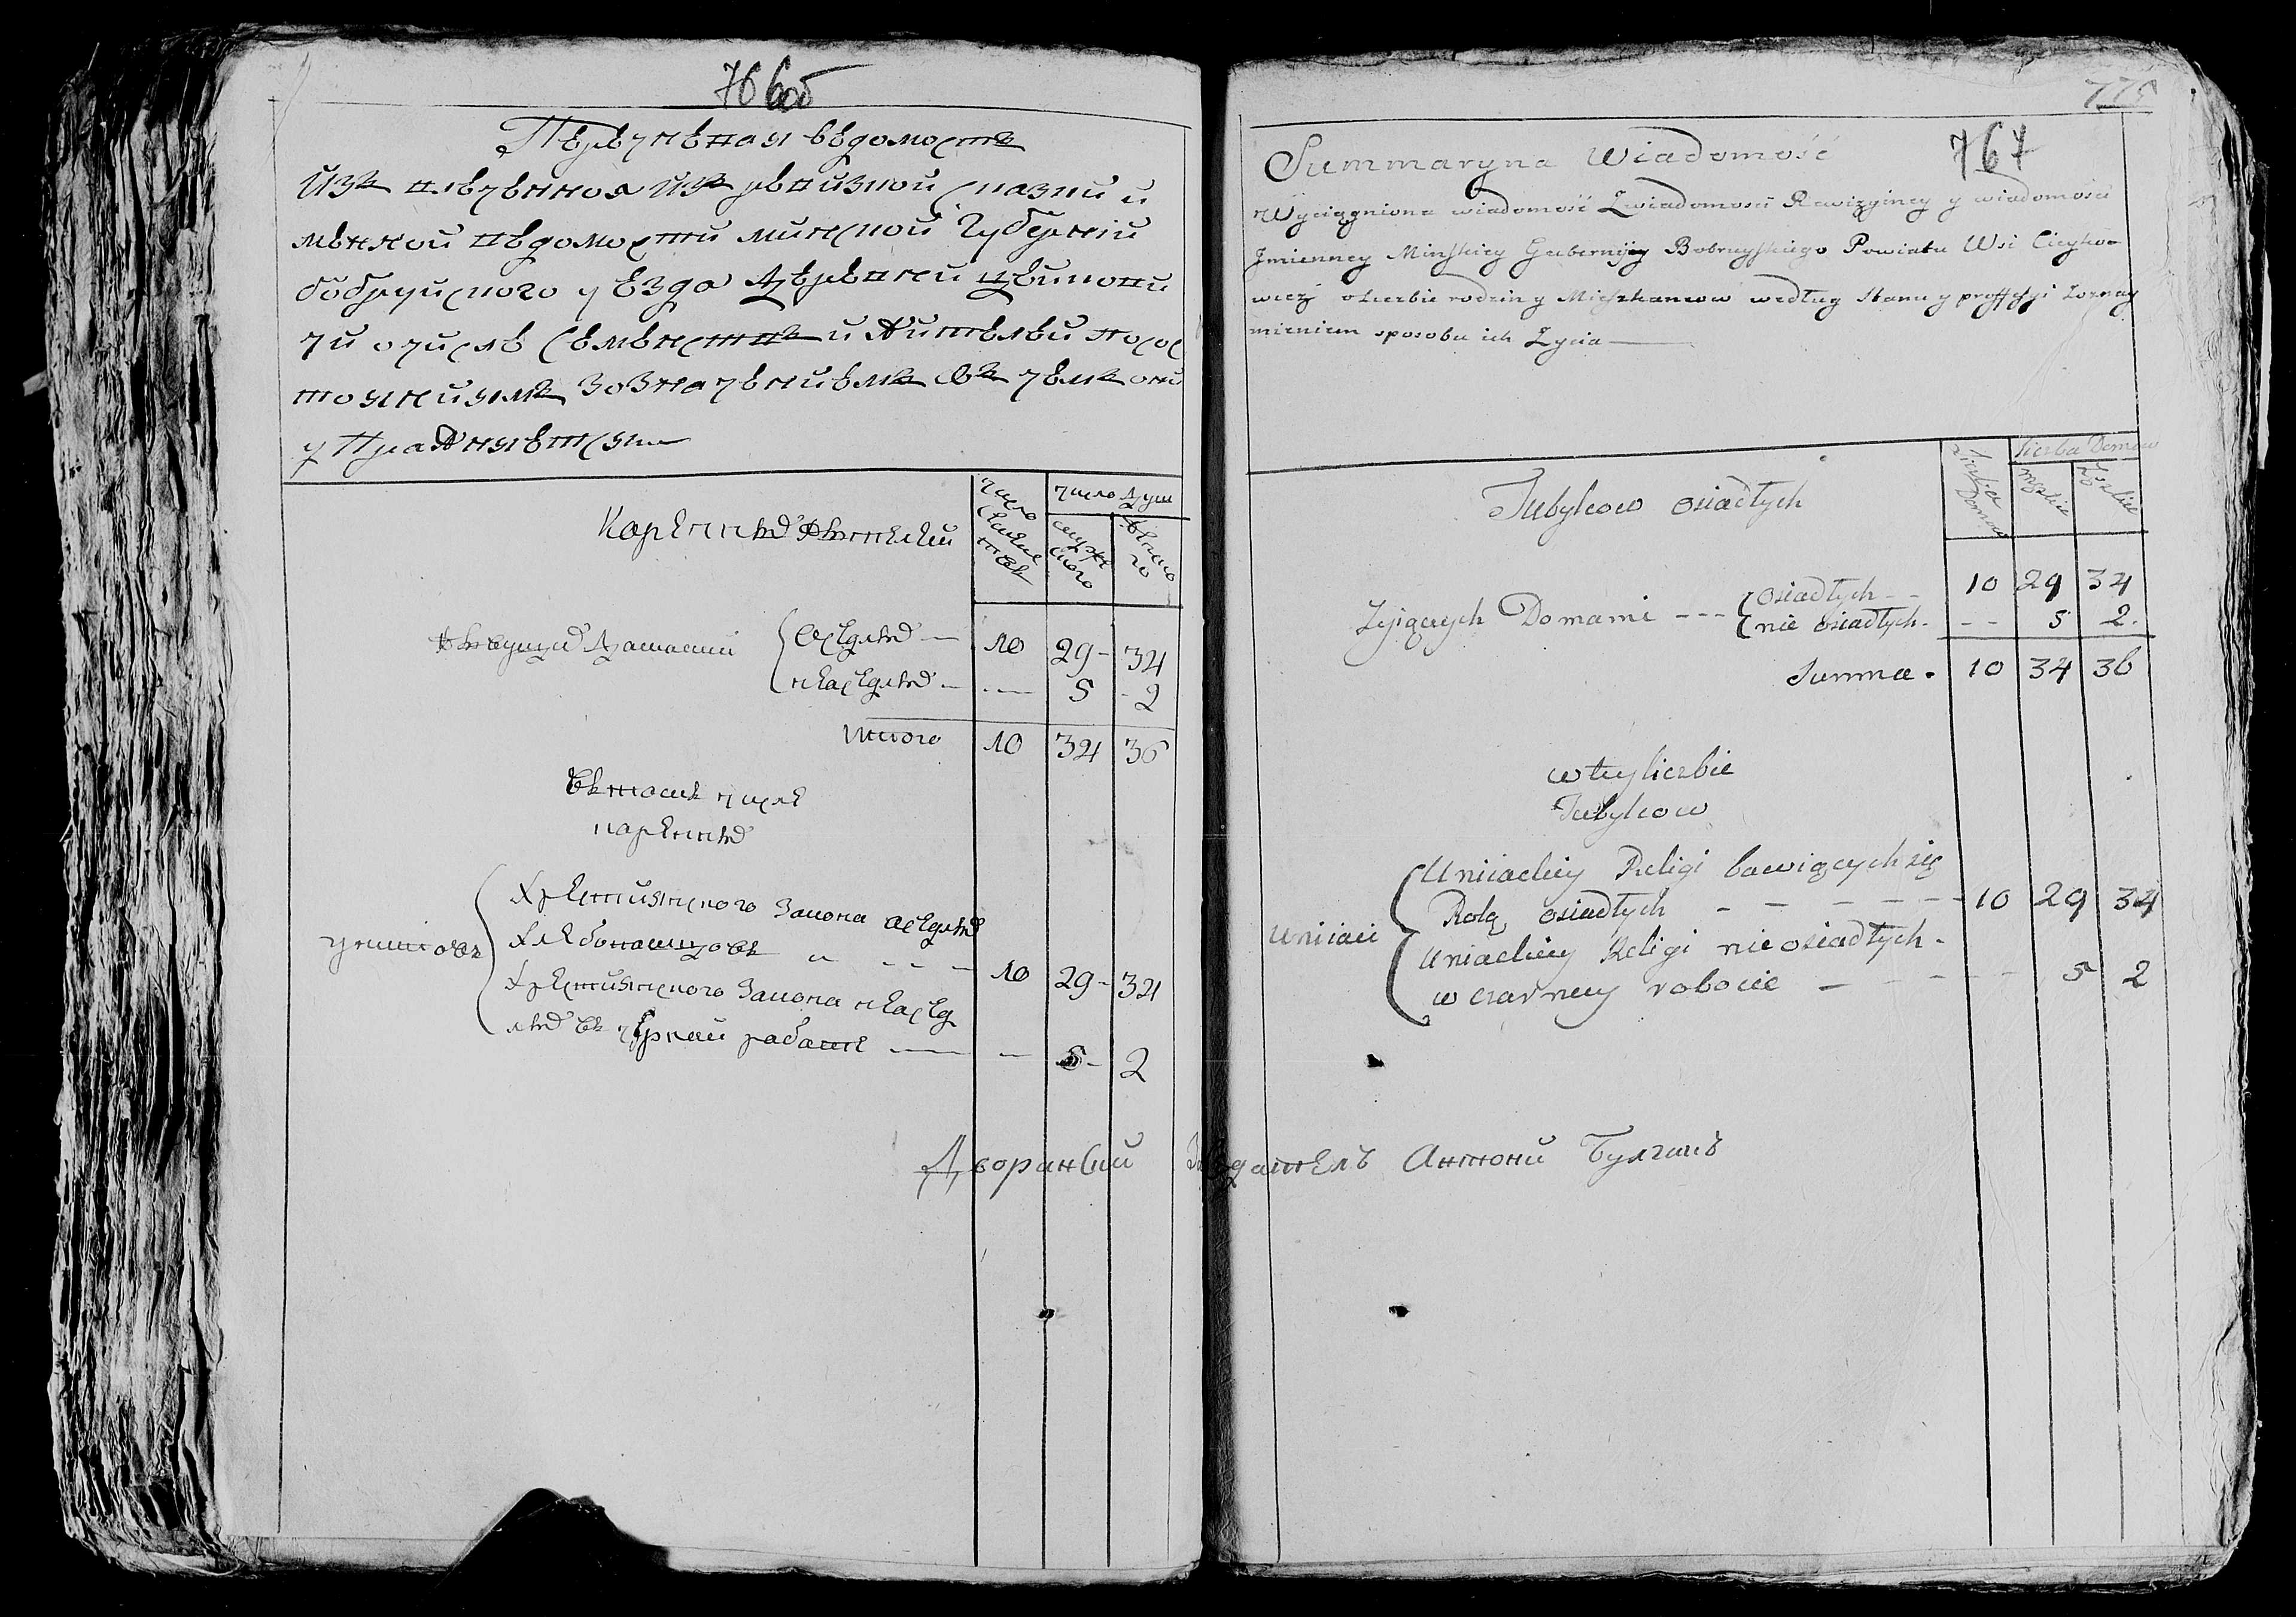 766об
Перечневая ведомость
Изъ влеченноя изъ ревизкой сказки и
менной ведомости минской Губерніи
бобруиского уезда деревней цейкови
чи о числе семействъ и жителей посос
тоянииямъ зозначениемъ въ чемъ они
упражняется
Коренныхъ жытелей
число семействъ
число душ
мужского
женского
жывущихъ домами
оседлыхъ 10 29 34
неоседлыхъ 5 2
Итого 10 34 36
Въ томъ числе
коренныхъ
униятовъ
хрестиянского закона оседлыхъ
хлебопашцовъ 10 29 34
хрестиянского закона неосед
лыхъ въ черной работе 5 2
775
767
Summaryna Wiadomość
Wyciągniona wiadomość Zwiadomosci Rewizyiney y wiadomosci
Jmienney Minskiey Gubernijy Bobruyskiego Powiatu Wsi Cieyko-
wicz o liczbie rodzin y Mieszkancow według stanu y proffessyi zoznay
mieniem sposobu ich Zycia
Tubylcow osiadłych
Liczba Domow
liczba Domow
męzkie
Żeńskie
Żyiących Domami
osiadłych 10 29 34
nie osiadłych 5 2.
Summa. 10 34 36
w tey liczbie
Tubylcow
Uniiaci
Uniiackiey Religi bawiących się
Rolą osiadłych 10 29 34
Uniackiey Religi nieosiadłych
w czarney robocie 5 2
Дворанский Заседатель Антони Булгакъ